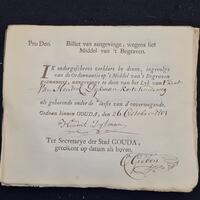 Pro Deo. Billet van aangevinge, wegens het
Middel van 't Begraven.
IK ondergeschreven verklare by dezen, ingevolge
van de Ordonnantie op 't Middel van 't Begraven
geëmaneerd, aangevinge te doen van het Lyk van
Hendrik Dijkman
als gehorende onder de Classis van d'onvermogende.
Actum binnen GOUDA, den 26 October
Hendrik Dijkman
Ter Secretarye der Stad GOUDA,
getekent op datum als boven.